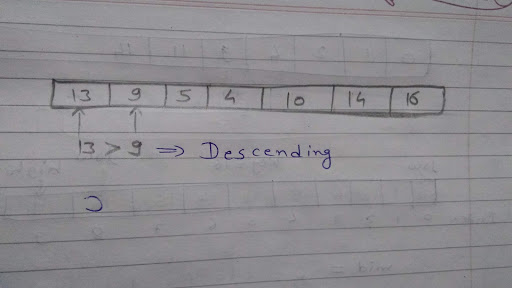 13 9 5 4 10 14 16
13 > 9 ⇒ Descending